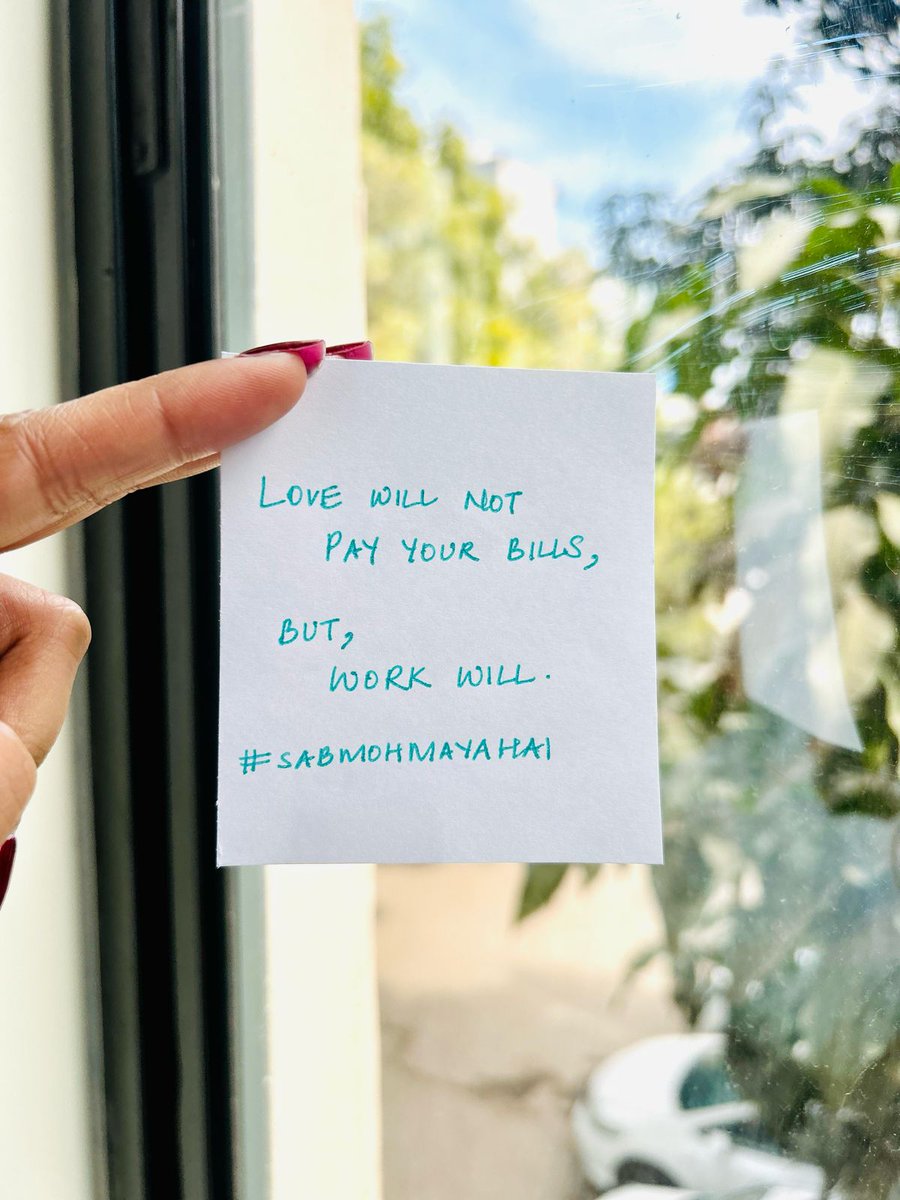 LOVE WILL NOT
PAY YOUR BILLS,
BUT,
WORK WILL.
#SABMOHMAYAHAI